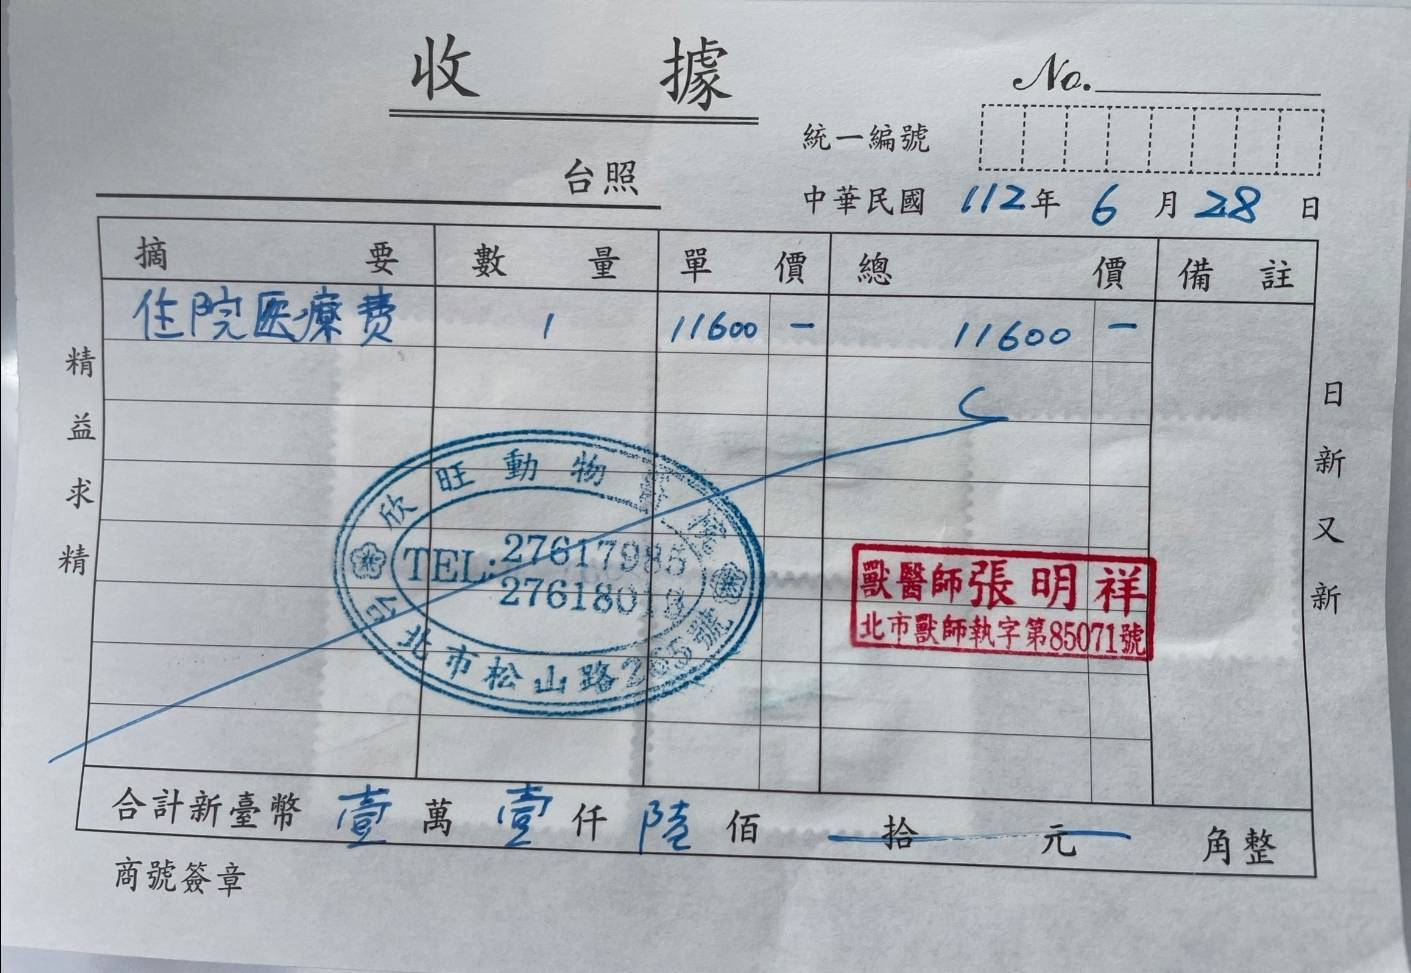 收據
No.
統一編號
台照
中華民國 112年 6月 28日
摘要 數量 單價 總價 備註
住院医療费 1 11600 - 11600 -
精益求精
日新又新
欣旺動物
TEL:27617985
台北市松山路 號
獸醫師張明祥
北市獸師執字第85071號
合計新臺幣 壹萬 壹仟 陸佰 拾 元 角整
商號簽章